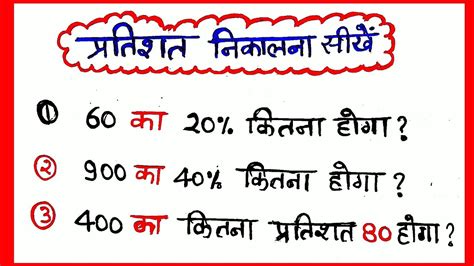 प्रतिशत निकालना सीखें
① 60 का 20% कितना होगा?
② 900 का 40% कितना होगा?
③ 400 का कितना प्रतिशत 80 होगा?